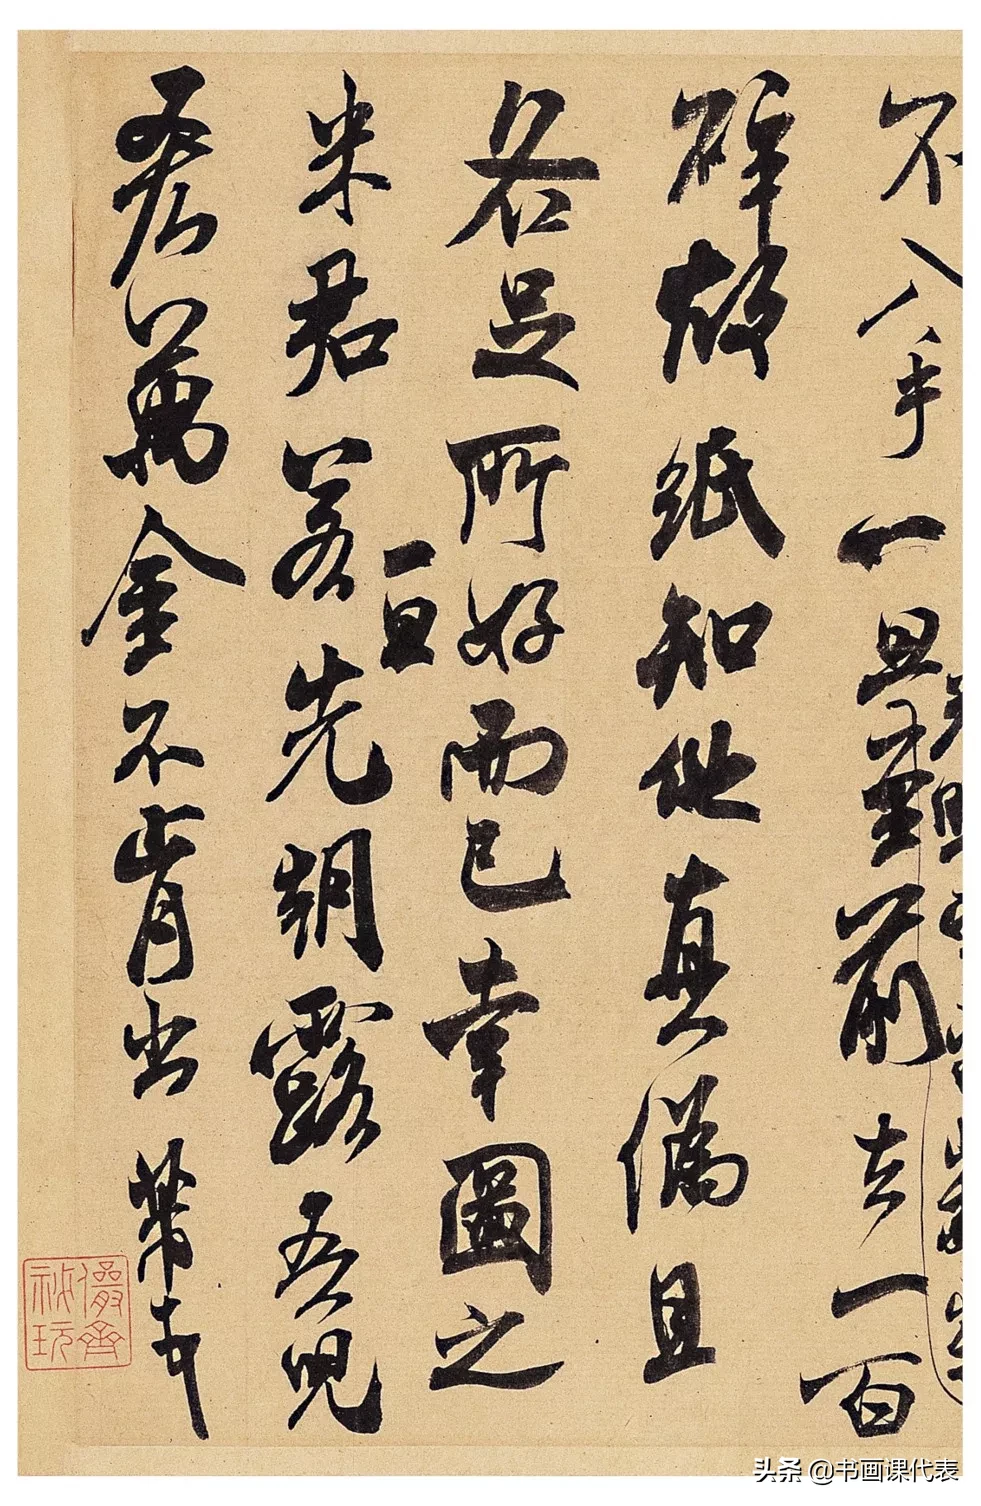 不入手一旦重前去一百
碎故紙知他真偽且
各足所好而已幸圖之
米君若一旦先朝露吾兒
吝萬金不肯出芾
儼齋祕玩
头条 @书画课代表